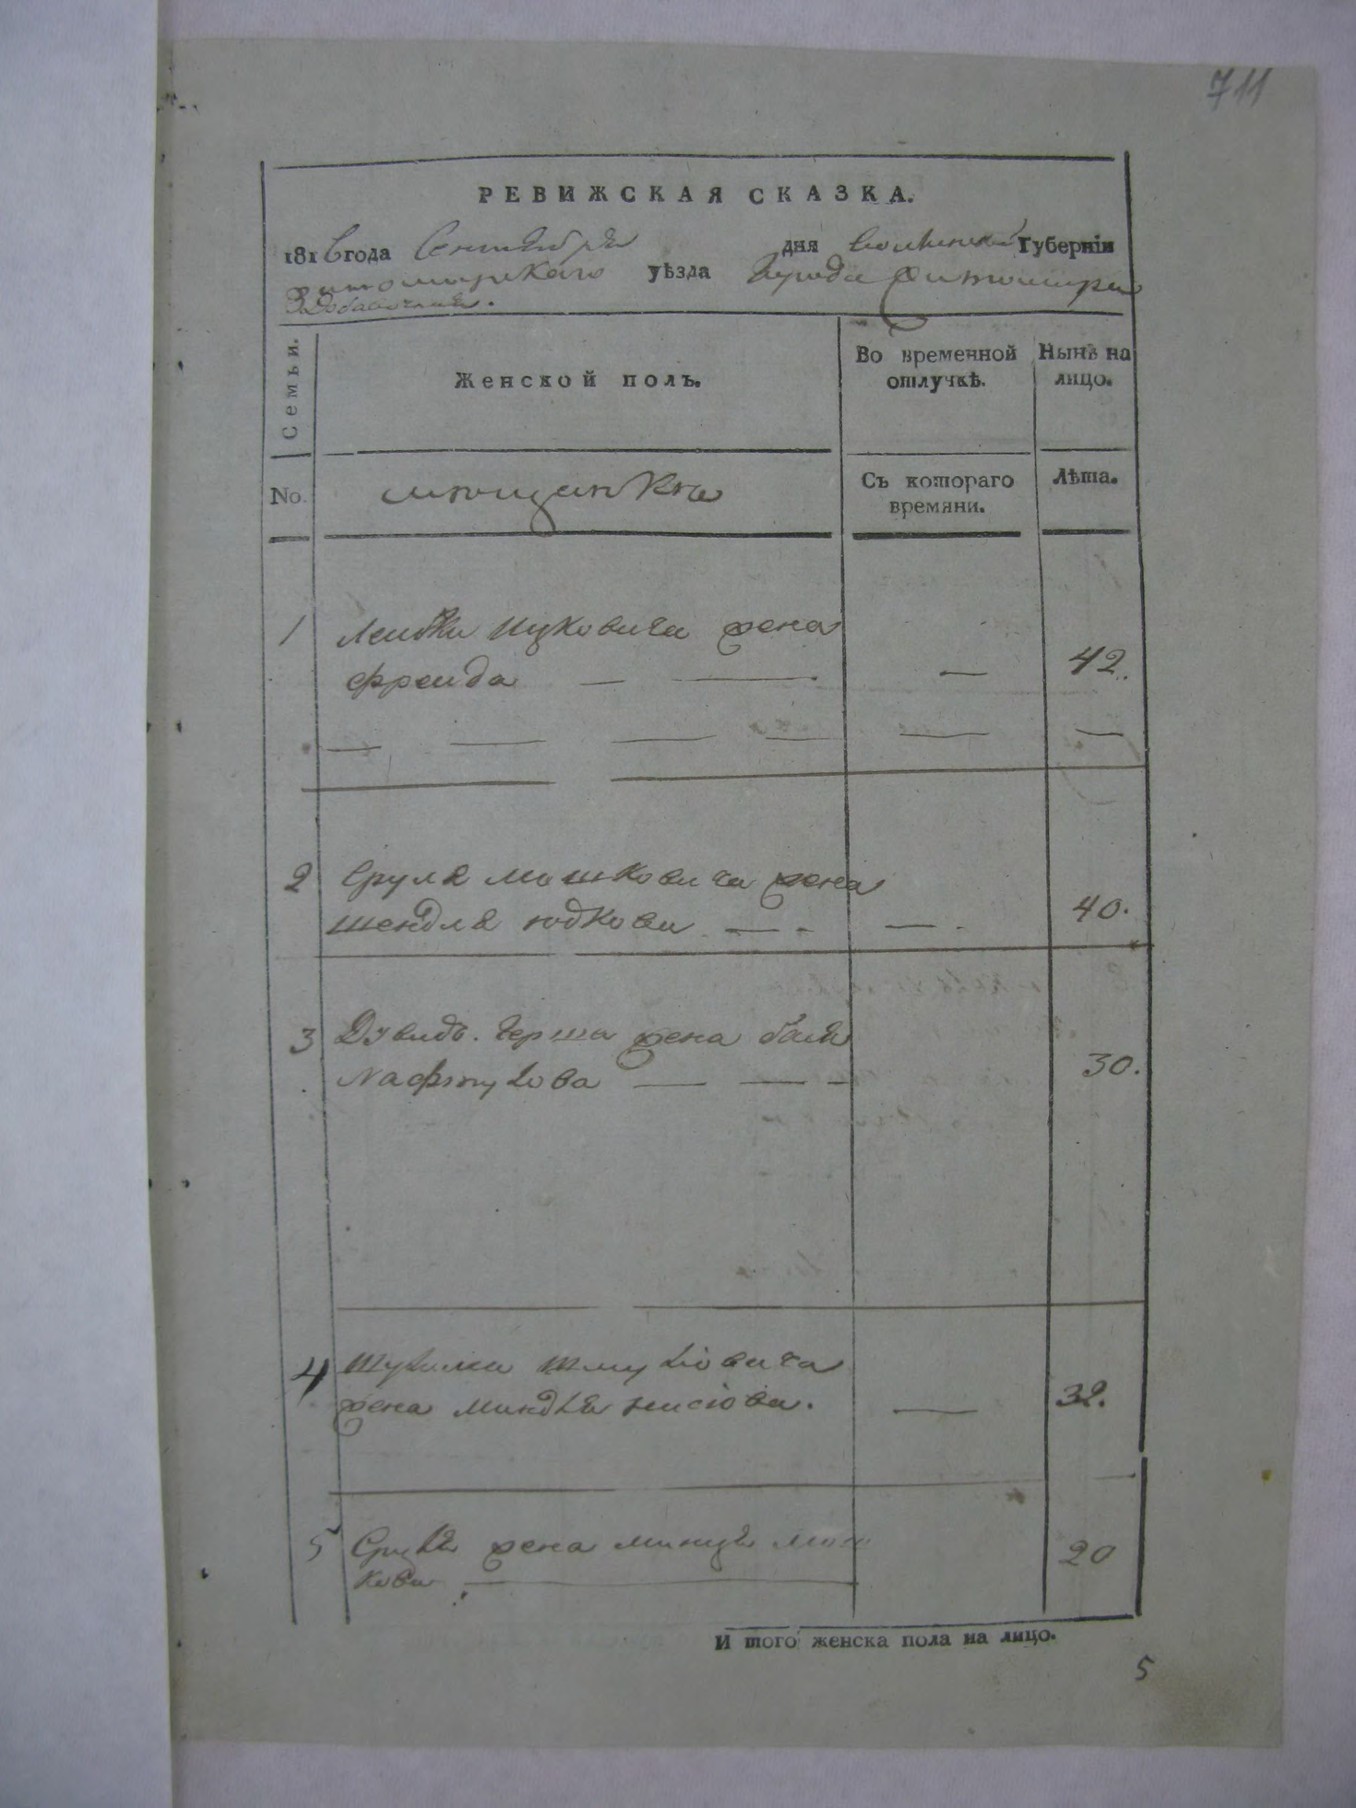 711
РЕВИЖСКАЯ СКАЗКА.
1816 года Сентября дня Волынской Губерніи
Житомирскаго уѣзда Города Житомира
Семьи.
Женской полъ.
Во временной отлучкѣ.
Нынѣ на лицо.
No.
мещанки
Съ котораго времяни.
Лѣта.
1 Лейбы Ицковича жена
Фрейда — — — 42.
2 Сруля Мошковича жена
Шендля Юдкова — — 40.
3 Дувидъ Герша жена
Нафтулова — — 30.
4 Шмулiовича
жена Миндля Нисiова. — 32.
5 жена Минця Мош
кова — 20
И того женска пола на лицо.
5